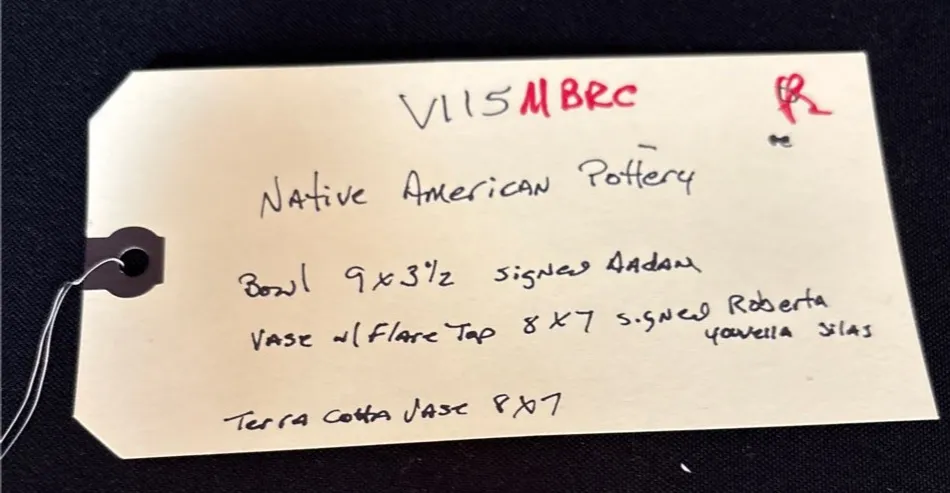 V115 MBRC
Native American Pottery
Bowl 9x3½ signed AAdAM
Vase w/ Flare Top 8x7 signed Roberta
youvella Silas
Terra Cotta Vase 8x7